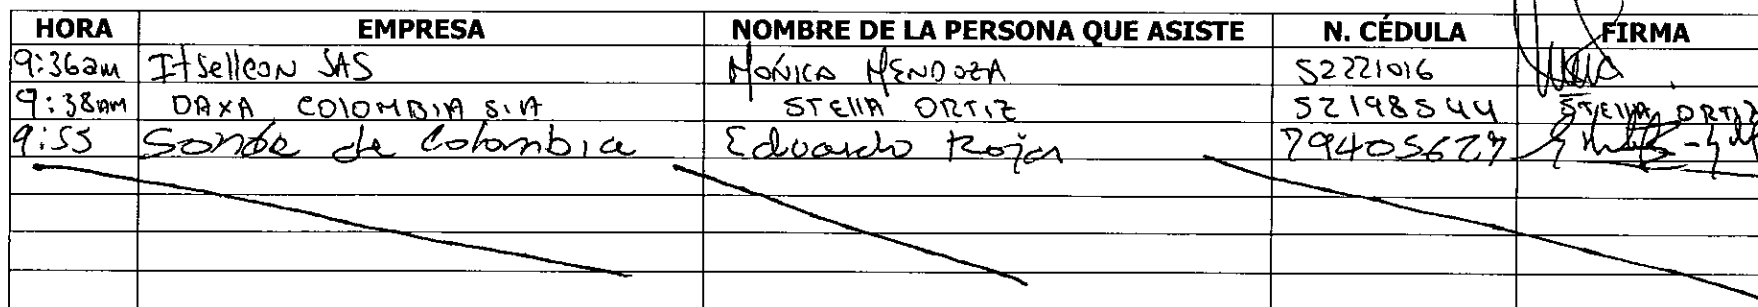 HORA EMPRESA NOMBRE DE LA PERSONA QUE ASISTE N. CÉDULA FIRMA
9:36am ItSellcon SAS MONICA MENDOZA 52221016
9:38am DAXA COLOMBIA S.A STELLA ORTIZ 52198544 STELLA ORTIZ
9:55 Sonda de Colombia Eduardo Rojas 79405627